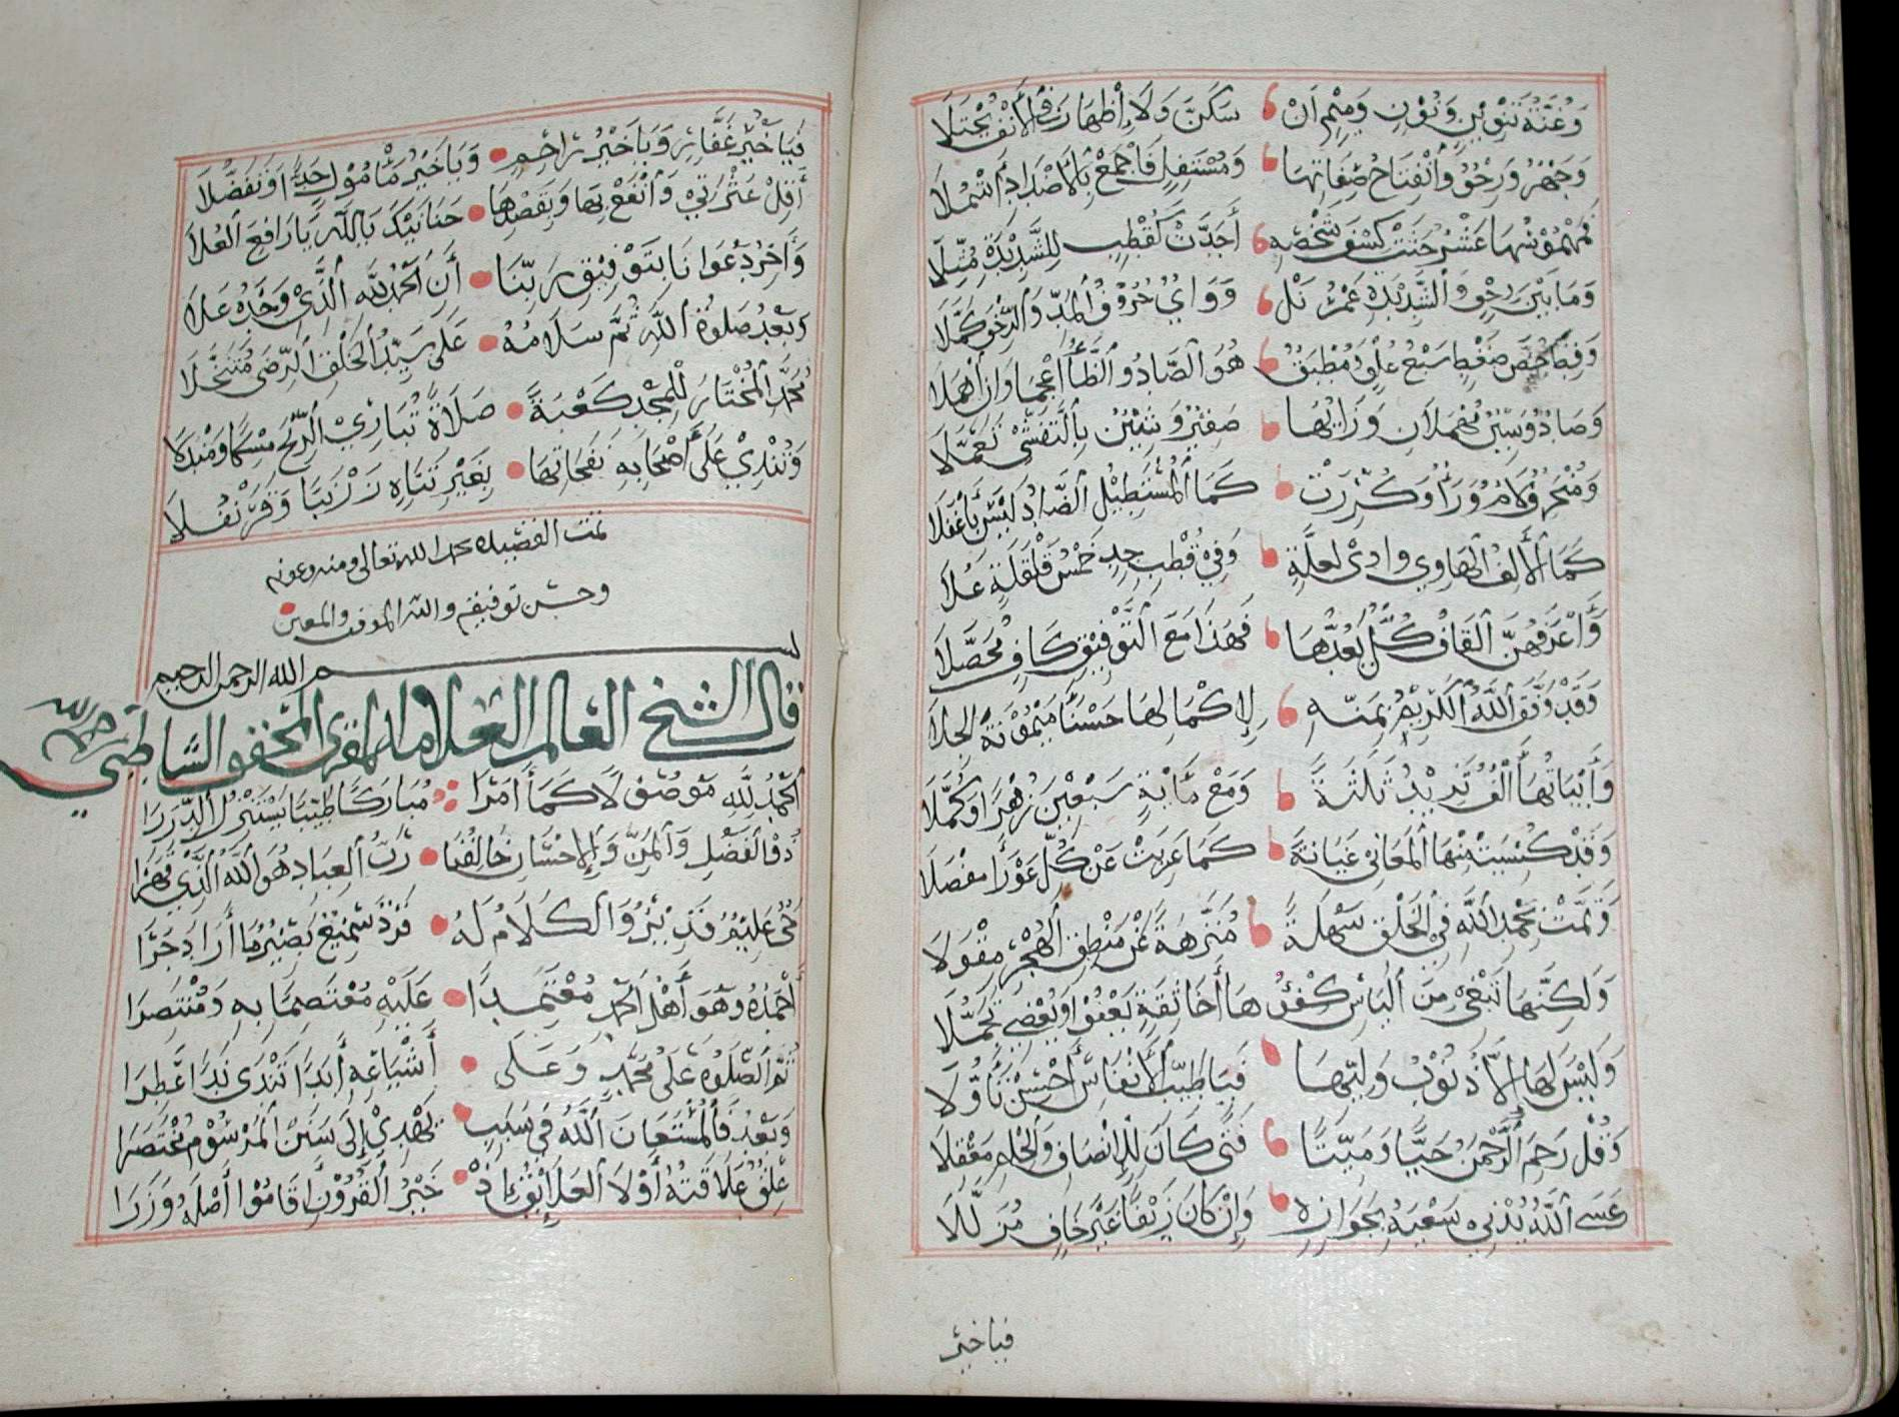 وَغُنَّةُ تَنْوِينٍ وَنُونٍ وَمِيمٍ اَنْ سَكَنَّ وَلَا إِظْهَارَ فِي الْأَنْفِ يُجْتَلَا
وَجَهْرٌ وَرِخْوٌ وَانْفِتَاحٌ صِفَاتُهَا وَمُسْتَفِلٌ فَاجْمَعْ بِالْأَضْدَادِ أَشْمُلَا
فَمَهْمُوسُهَا عَشْرٌ حَثَتْ كِسْفَ شَخْصِهِ أَجَدَّتْ كَقُطْبٍ لِلشَّدِيدَةِ مُثِّلَا
وَمَا بَيْنَ رِخْوٍ وَالشَّدِيدَةِ عَمْرُ نَلْ وَوَايٌ حُرُوفُ الْمَدِّ وَالرِّخْوَ كَمَّلَا
وَقِظْ خُصَّ ضَغْطٍ سَبْعُ عُلْوٍ وَمُطْبَقٌ هُوَ الصَّادُ وَالظَّا أُعْجِمَا وَإِنْ أُهْمِلَا
وَصَادٌ وَسِينٌ مُهْمَلَانِ وَزَايُهَا صَفِيرٌ وَشِينٌ بِالتَّفَشِّي تَعَمَّلَا
وَمُنْحَرِفٌ لَامٌ وَرَاءٌ وَكُرِّرَتْ كَمَا الْمُسْتَطِيلُ الضَّادُ لَيْسَ بِأَغْفَلَا
كَمَا الْأَلِفُ الْهَاوِي وَاٰوِي لِعِلَّةٍ وَفِي قُطْبِ جِدٍ خَمْسُ قَلْقَلَةٍ عُلَا
وَأَعْرَفُهُنَّ الْقَافُ كُلٌّ يَعُدُّهَا فَهَذَا مَعَ التَّوْفِيقِ كَافٍ مُحَصَّلَا
وَقَدْ وَفَّقَ اللَّهُ الْكَرِيمُ بِمَنِّهِ لِإِكْمَالِهَا حَسْنَاءَ مَيْمُونَةَ الْجِلَا
وَأَبْيَاتُهَا أَلْفٌ تَزِيدُ ثَلَثَةً وَمَعْ مِائَةٍ سَبْعِينَ زُهْرًا وَكُمَّلَا
وَقَدْ كُسِيَتْ مِنْهَا الْمَعَانِي عِنَايَةً كَمَا عَرِيَتْ عَنْ كُلِّ عَوْرَاءَ مِفْصَلَا
وَتَمَّتْ بِحَمْدِ اللَّهِ فِي الْخَلْقِ سَهْلَةً مُنَزَّهَةً عَنْ مَنْطِقِ الْهُجْرِ مِقْوَلَا
وَلَكِنَّهَا تَبْغِي مِنَ النَّاسِ كُفْؤَهَا أَخَا ثِقَةٍ يَعْفُوْ وَيُغْضِي تَجَمُّلَا
وَلَيْسَ لَهَا إِلَّا ذُنُوبُ وَلِيِّهَا فَيَا طَيِّبَ الْأَنْفَاسِ أَحْسِنْ تَأَوُّلَا
وَقُلْ رَحِمَ الرَّحْمَنُ حَيًّا وَمَيِّتًا فَتًى كَانَ لِلْإِنْصَافِ وَالْحِلْمِ مَعْقِلَا
عَسَى اللَّهُ يُدْنِي سَعْيَهُ بِجَوَازِهِ وَإِنْ كَانَ زَيْفًا غَيْرَ خَافٍ مُزَلَّلَا
فيا خير
فَيَا خَيْرَ غَفَّارٍ وَيَا خَيْرَ رَاحِمٍ وَيَا خَيْرَ مَأْمُولٍ جَدًا وَتَفَضُّلَا
أَقِلْ عَثْرَتِي وَانْفَعْ بِهَا وَبِقَصْدِهَا حَنَانَيْكَ يَا اللَّهُ يَا رَافِعَ الْعُلَا
وَآخِرُ دَعْوَانَا بِتَوْفِيقِ رَبِّنَا أَنِ الْحَمْدُ لِلَّهِ الَّذِي وَحْدَهُ عَلَا
وَبَعْدُ صَلَوةُ اللَّهِ ثُمَّ سَلَامُهُ عَلَى سَيِّدِ الْخَلْقِ الرِّضَى مُتَنَخَّلَا
مُحَمَّدٍ الْمُخْتَارِ لِلْمَجْدِ كَعْبَةً صَلَاةً تُبَارِي الرِّيحَ مِسْكًا وَمَنْدَلَا
وَتُبْدِي عَلَى أَصْحَابِهِ نَفَحَاتِهَا بِغَيْرِ تَنَاهٍ زَرْنَبًا وَقَرَنْفُلَا
تمت القصيده بحمد الله تعالى ومنه وعونه
وحسن توفيقه والله الموفق والمعين
بسم الله الرحمن الرحيم
قال الشيخ العالم العلامة المقرئ المحقق الشاطبي رحمه الله
اَلْحَمْدُ لِلَّهِ مَوْصُولًا كَمَا أَمَرَا مُبَارَكًا طَيِّبًا يَسْتَنْزِلُ الدِّرَرَا
ذُو الْفَضْلِ وَالْمَنِّ وَالْإِحْسَانِ خَالِقُنَا رَبُّ الْعِبَادِ هُوَ اللَّهُ الَّذِي قَهَرَا
حَيٌّ عَلِيمٌ قَدِيرٌ وَالْكَلَامُ لَهُ فَرْدٌ سَمِيعٌ بَصِيرٌ مَا أَرَادَ جَرَا
أَحْمَدُهُ وَهْوَ أَهْلُ الْحَمْدِ مُعْتَمِدًا عَلَيْهِ مُعْتَصِمًا بِهِ وَمُنْتَصِرَا
ثُمَّ الصَّلَوةُ عَلَى مُحَمَّدٍ وَعَلَى أَشْيَاعِهِ أَبَدًا تَنْدَى نَدًا عَطِرَا
وَبَعْدُ فَالْمُسْتَعَانُ اللَّهُ فِي سَبَبٍ يَهْدِي إِلَى سَنَنِ الْمَرْسُومِ مُخْتَصَرَا
عِلْقٌ عَلَاقَتُهُ أَوْلَا الْعَلَائِقِ إِذْ خَيْرُ الْقُرُونِ أَقَامُوا أَصْلَهُ وَزَرَا